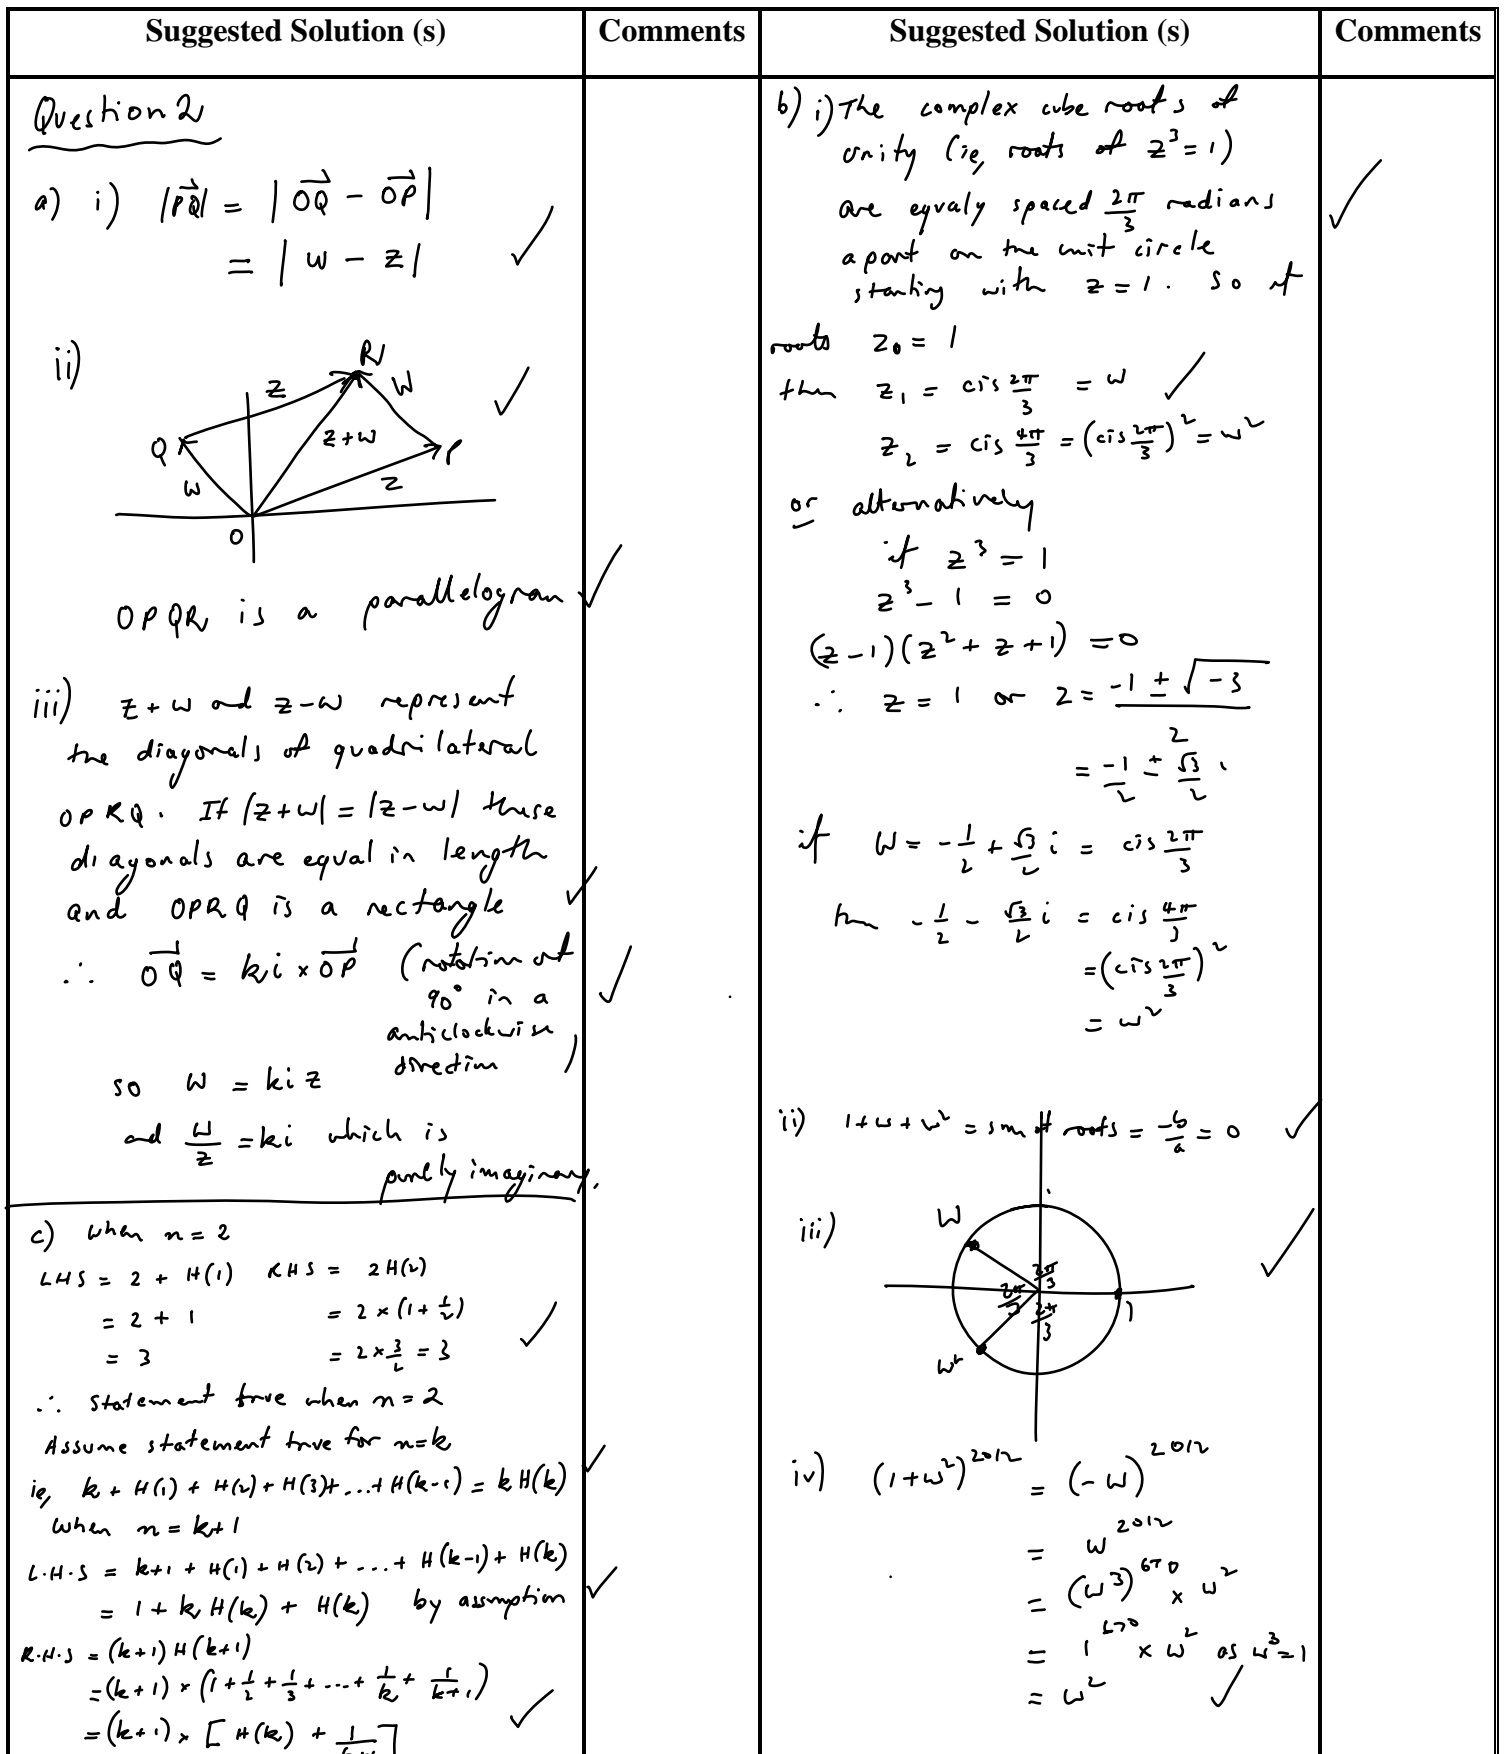 Suggested Solution (s)
Comments
Question 2
a) i) |PQ| = |OQ - OP|
= |w - z|
ii)
R
z
w
Q
z+w
P
w
z
O
OPQR is a parallelogram
iii) z+w and z-w represent
the diagonals of quadrilateral
OPRQ. If |z+w| = |z-w| these
diagonals are equal in length
and OPRQ is a rectangle
∴ OQ = ki × OP (rotation of
90° in a
anticlockwise
direction)
so w = kiz
and w/z = ki which is
purely imaginary.
c) when n = 2
LHS = 2 + H(1) RHS = 2H(2)
= 2 + 1 = 2 × (1 + 1/2)
= 3 = 2 × 3/2 = 3
∴ Statement true when n = 2
Assume statement true for n=k
ie, k + H(1) + H(2) + H(3)+ ...+ H(k-1) = k H(k)
when n = k+1
L.H.S = k+1 + H(1) + H(2) + ... + H(k-1) + H(k)
= 1 + k H(k) + H(k) by assumption
R.H.S = (k+1) H(k+1)
= (k+1) × (1 + 1/2 + 1/3 + ... + 1/k + 1/k+1)
= (k+1) × [H(k) + 1/k+1]
Suggested Solution (s)
Comments
b) i) The complex cube roots of
unity (ie, roots of z³ = 1)
are equaly spaced 2π/3 radians
apart on the unit circle
starting with z = 1. So if
roots z₀ = 1
then z₁ = cis 2π/3 = w
z₂ = cis 4π/3 = (cis 2π/3)² = w²
or alternatively
if z³ = 1
z³ - 1 = 0
(z-1)(z² + z + 1) = 0
∴ z = 1 or z = -1 ± √-3 / 2
= -1/2 ± √3/2 i
if w = -1/2 + √3/2 i = cis 2π/3
then -1/2 - √3/2 i = cis 4π/3
= (cis 2π/3)²
= w²
ii) 1+w+w² = sum of roots = -b/a = 0
iii)
w
2π/3
2π/3
2π/3
1
w²
iv) (1+w²)²⁰¹² = (-w)²⁰¹²
= w²⁰¹²
= (w³)⁶⁷⁰ × w²
= 1⁶⁷⁰ × w² as w³=1
= w²